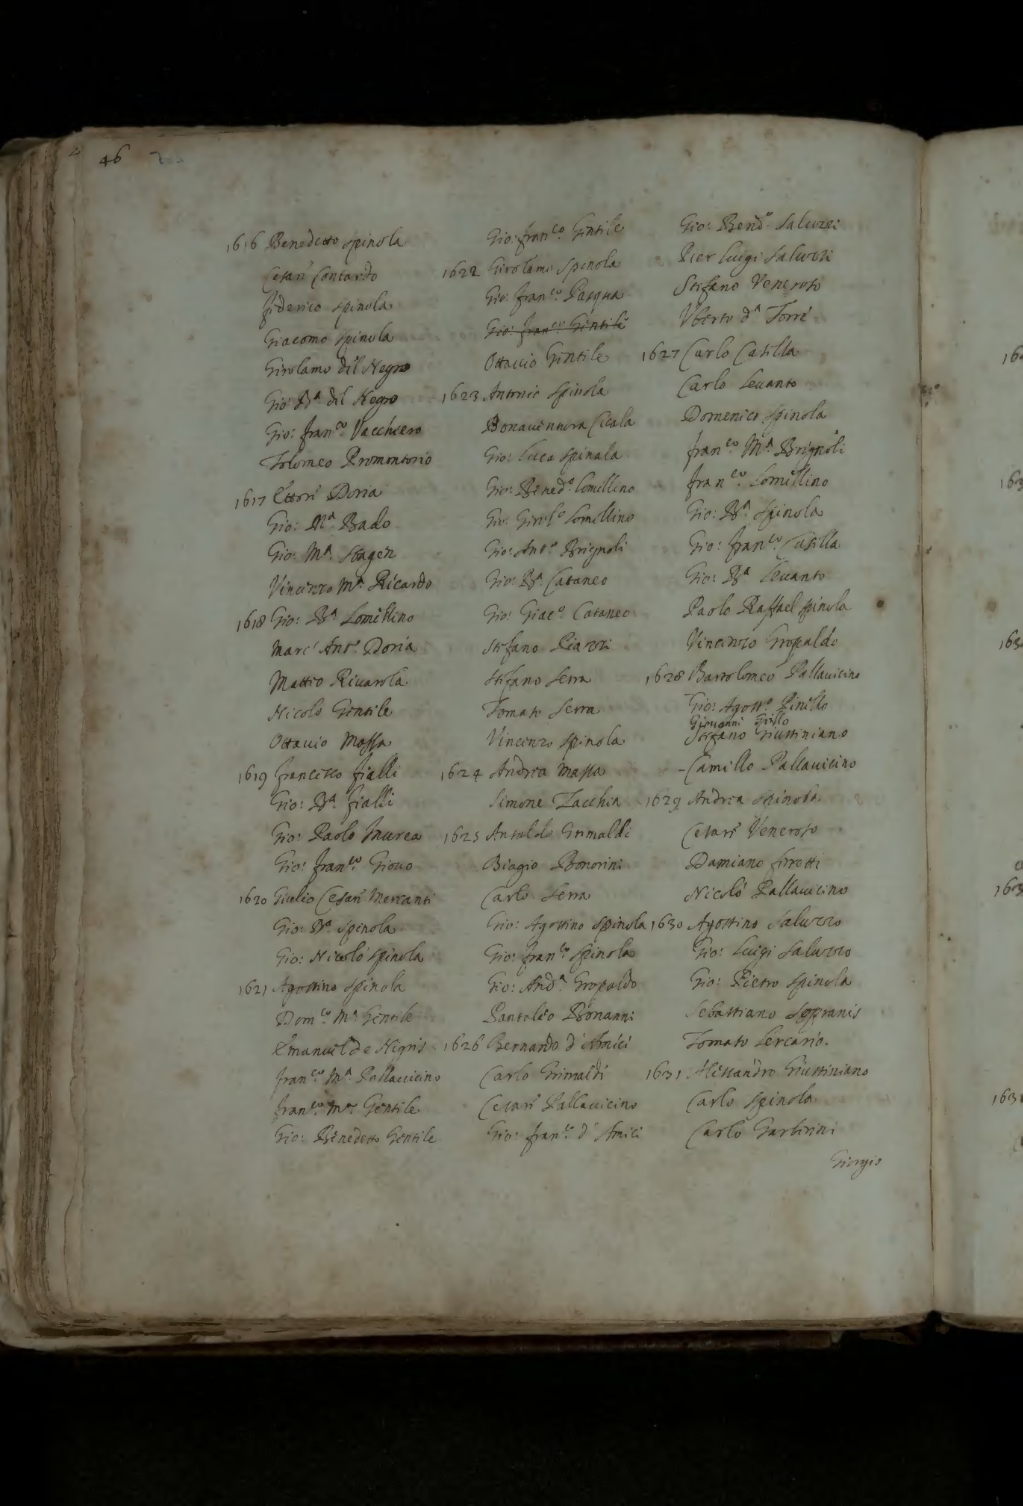 46
1616 Benedetto Spinola
Cesare Contardo
Federico Spinola
Giacomo Spinola
Girolamo del Negro
Gio: Bª del Negro
Gio: Franco. Vacchiero
Tolomeo Promontorio
1617 Ettore Doria
Gio: Mª Bado
Gio: Mª
Vincenzo Mª Ricardo
1618 Gio: Bª Lomellino
Marc' Anto. Doria
Matteo Rivarola
Nicolò Gentile
Ottavio Massa
1619 Francesco Fialli
Gio: Bª Fialli
Gio: Paolo Murea
Gio: Franco Giovo
1620 Giulio Cesare Mercanti
Gio: Bª Spinola
Gio: Nicolò Spinola
1621 Agostino Spinola
Domco Mª Gentile
Emanuel de Nigris
Franco. Mª Pallavicino
Franco. Mª Gentile
Gio: Benedetto Gentile
Gio: Franco. Gentile
1622 Girolamo Spinola
Gio: Franco. Pasqua
Gio: Franco Gentile
Ottavio Gentile
1623 Antonio Spinola
Bonaventura Cicala
Gio: Luca Spinola
Gio: Bened.o Lomellino
Gio: Girol.o Lomellino
Gio: Anto. Brignoli
Gio: Bª Cataneo
Gio: Giaco. Cataneo
Stefano Piazzi
Stefano Serra
Tomaso Serra
Vincenzo Spinola
1624 Andrea Massa
Simone Zacchia
1625 Ansaldo Grimaldi
Biagio Bonorini
Carlo Serra
Gio: Agostino Spinola
Gio: Franco. Spinola
Gio: Andª. Gropaldo
Pantaleo Bonanni
1626 Bernardo d'Amici
Carlo Grimaldi
Cesare Pallavicino
Gio: Franco. d'Amici
Gio: Bend.o Saluzzi
Pier Luigi Saluzzi
Stefano Veneroso
Uberto dª Torre
1627 Carlo Casella
Carlo Levanto
Domenico Spinola
Franco. Mª Brignoli
Franco. Lomellino
Gio: Bª Spinola
Gio: Franco. Casella
Gio: Bª Levanto
Paolo Raffael Spinola
Vincenzo Gropaldo
1628 Bartolomeo Pallavicino
Gio: Agosto. Pinello
Giovanni Grillo
Stefano Giustiniano
-Camillo Pallavicino
1629 Andrea Spinola
Cesare Veneroso
Damiano Ferretti
Nicolò Pallavicino
1630 Agostino Saluzzo
Gio: Luigi Saluzzo
Gio: Pietro Spinola
Sebastiano Sopranis
Tomaso Lercario.
1631 Alessandro Giustiniano
Carlo Spinola
Carlo Garbarini
Giorgio